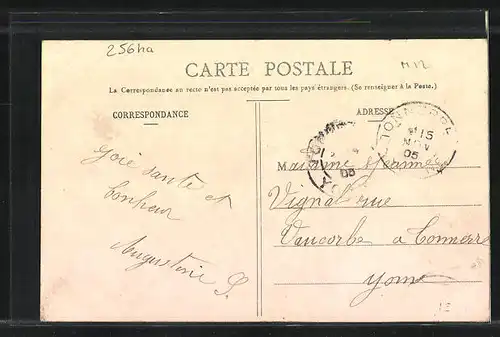 256ha
M12
CARTE POSTALE
La Correspondance au recto n'est pas acceptée par tous les pays étrangers. (Se renseigner à la Poste.)
CORRESPONDANCE
ADRESSE
TONNERRE
15
NOV
05
05
Madame Jeanne
Vignal rue
Vaucorbe a Tonnerre
Yonne
joie santé et
bonheur
Augustine S.
12